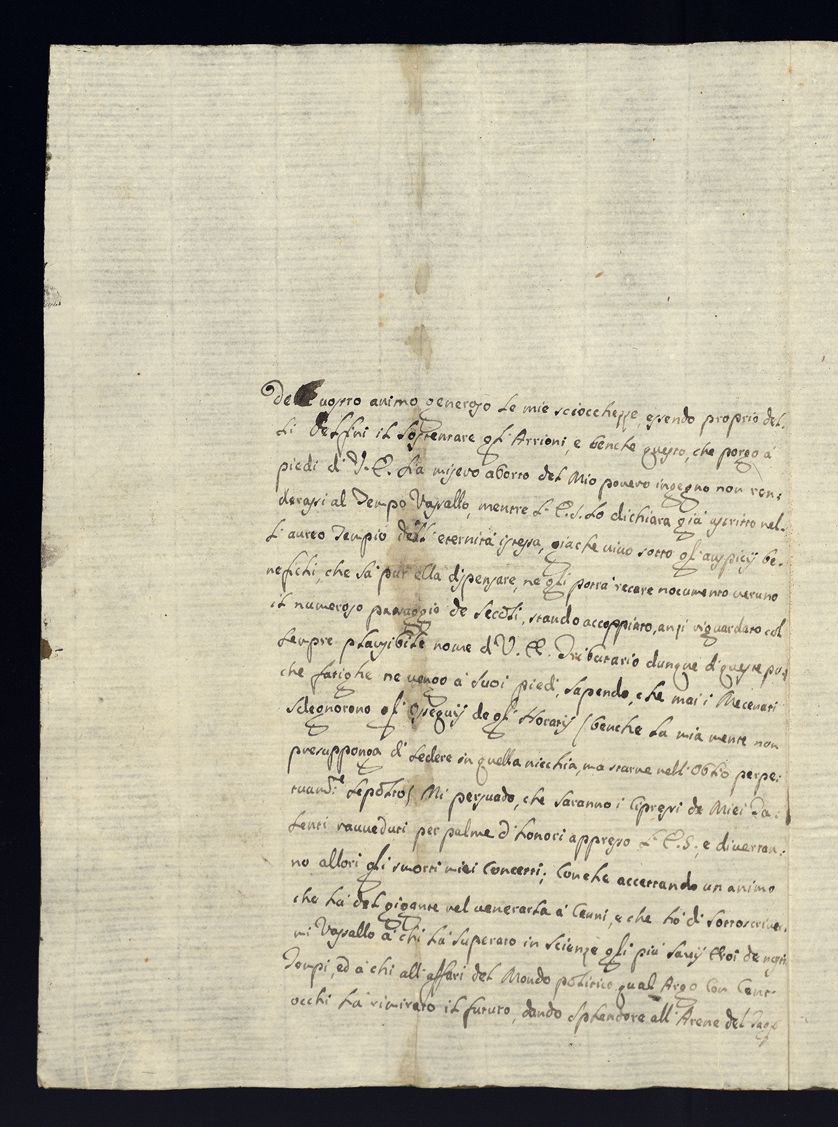 del vostro animo generoso le mie sciochezze, essendo proprio del-
li delfini il sostentare gl'Arrioni, e benche questo, che porgo a'
piedi di V. E. sia misero aborto del Mio povero ingegno non ren-
derassi al Tempo Vassallo, mentre l'E.S. lo dichiara già ascritto nel-
l'aureo Tempio dell'eternità istessa, giache vivo sotto gl'auspicij be-
nefichi, che sà pur ella dispensare, ne gli potrà recare nocumento veruno
il numeroso passaggio de Secoli, stando accoppiato, anzi riguardato col
sempre plausibile nome di V. E. Tributario dunque di queste po-
che fatighe ne vengo a' suoi piedi, sapendo, che mai i Mecenati
sdegnorono gl'Ossequij degl'Horatij (benche la mia mente non
presupponga di sedere in quella nicchia, ma starne nell'Oblio perpe-
tuamte sepolto) Mi persuado, che saranno i Cipressi de Miei Ta-
lenti ravveduti per palme d'honori appresso l'E.S., e diverran-
no allori gli smorti miei Concetti; Conche accettando un animo
che hà del gigante nel venerarla à Cenni, e che hò di sottoscriver-
mi Vassallo à chi hà superato in scienze gli più savij Eroi de nostri
Tempi, ed à chi all'affari del Mondo politico qual Argo Con Cent'
occhi hà rimirato il futuro, dando splendore all'Arene del